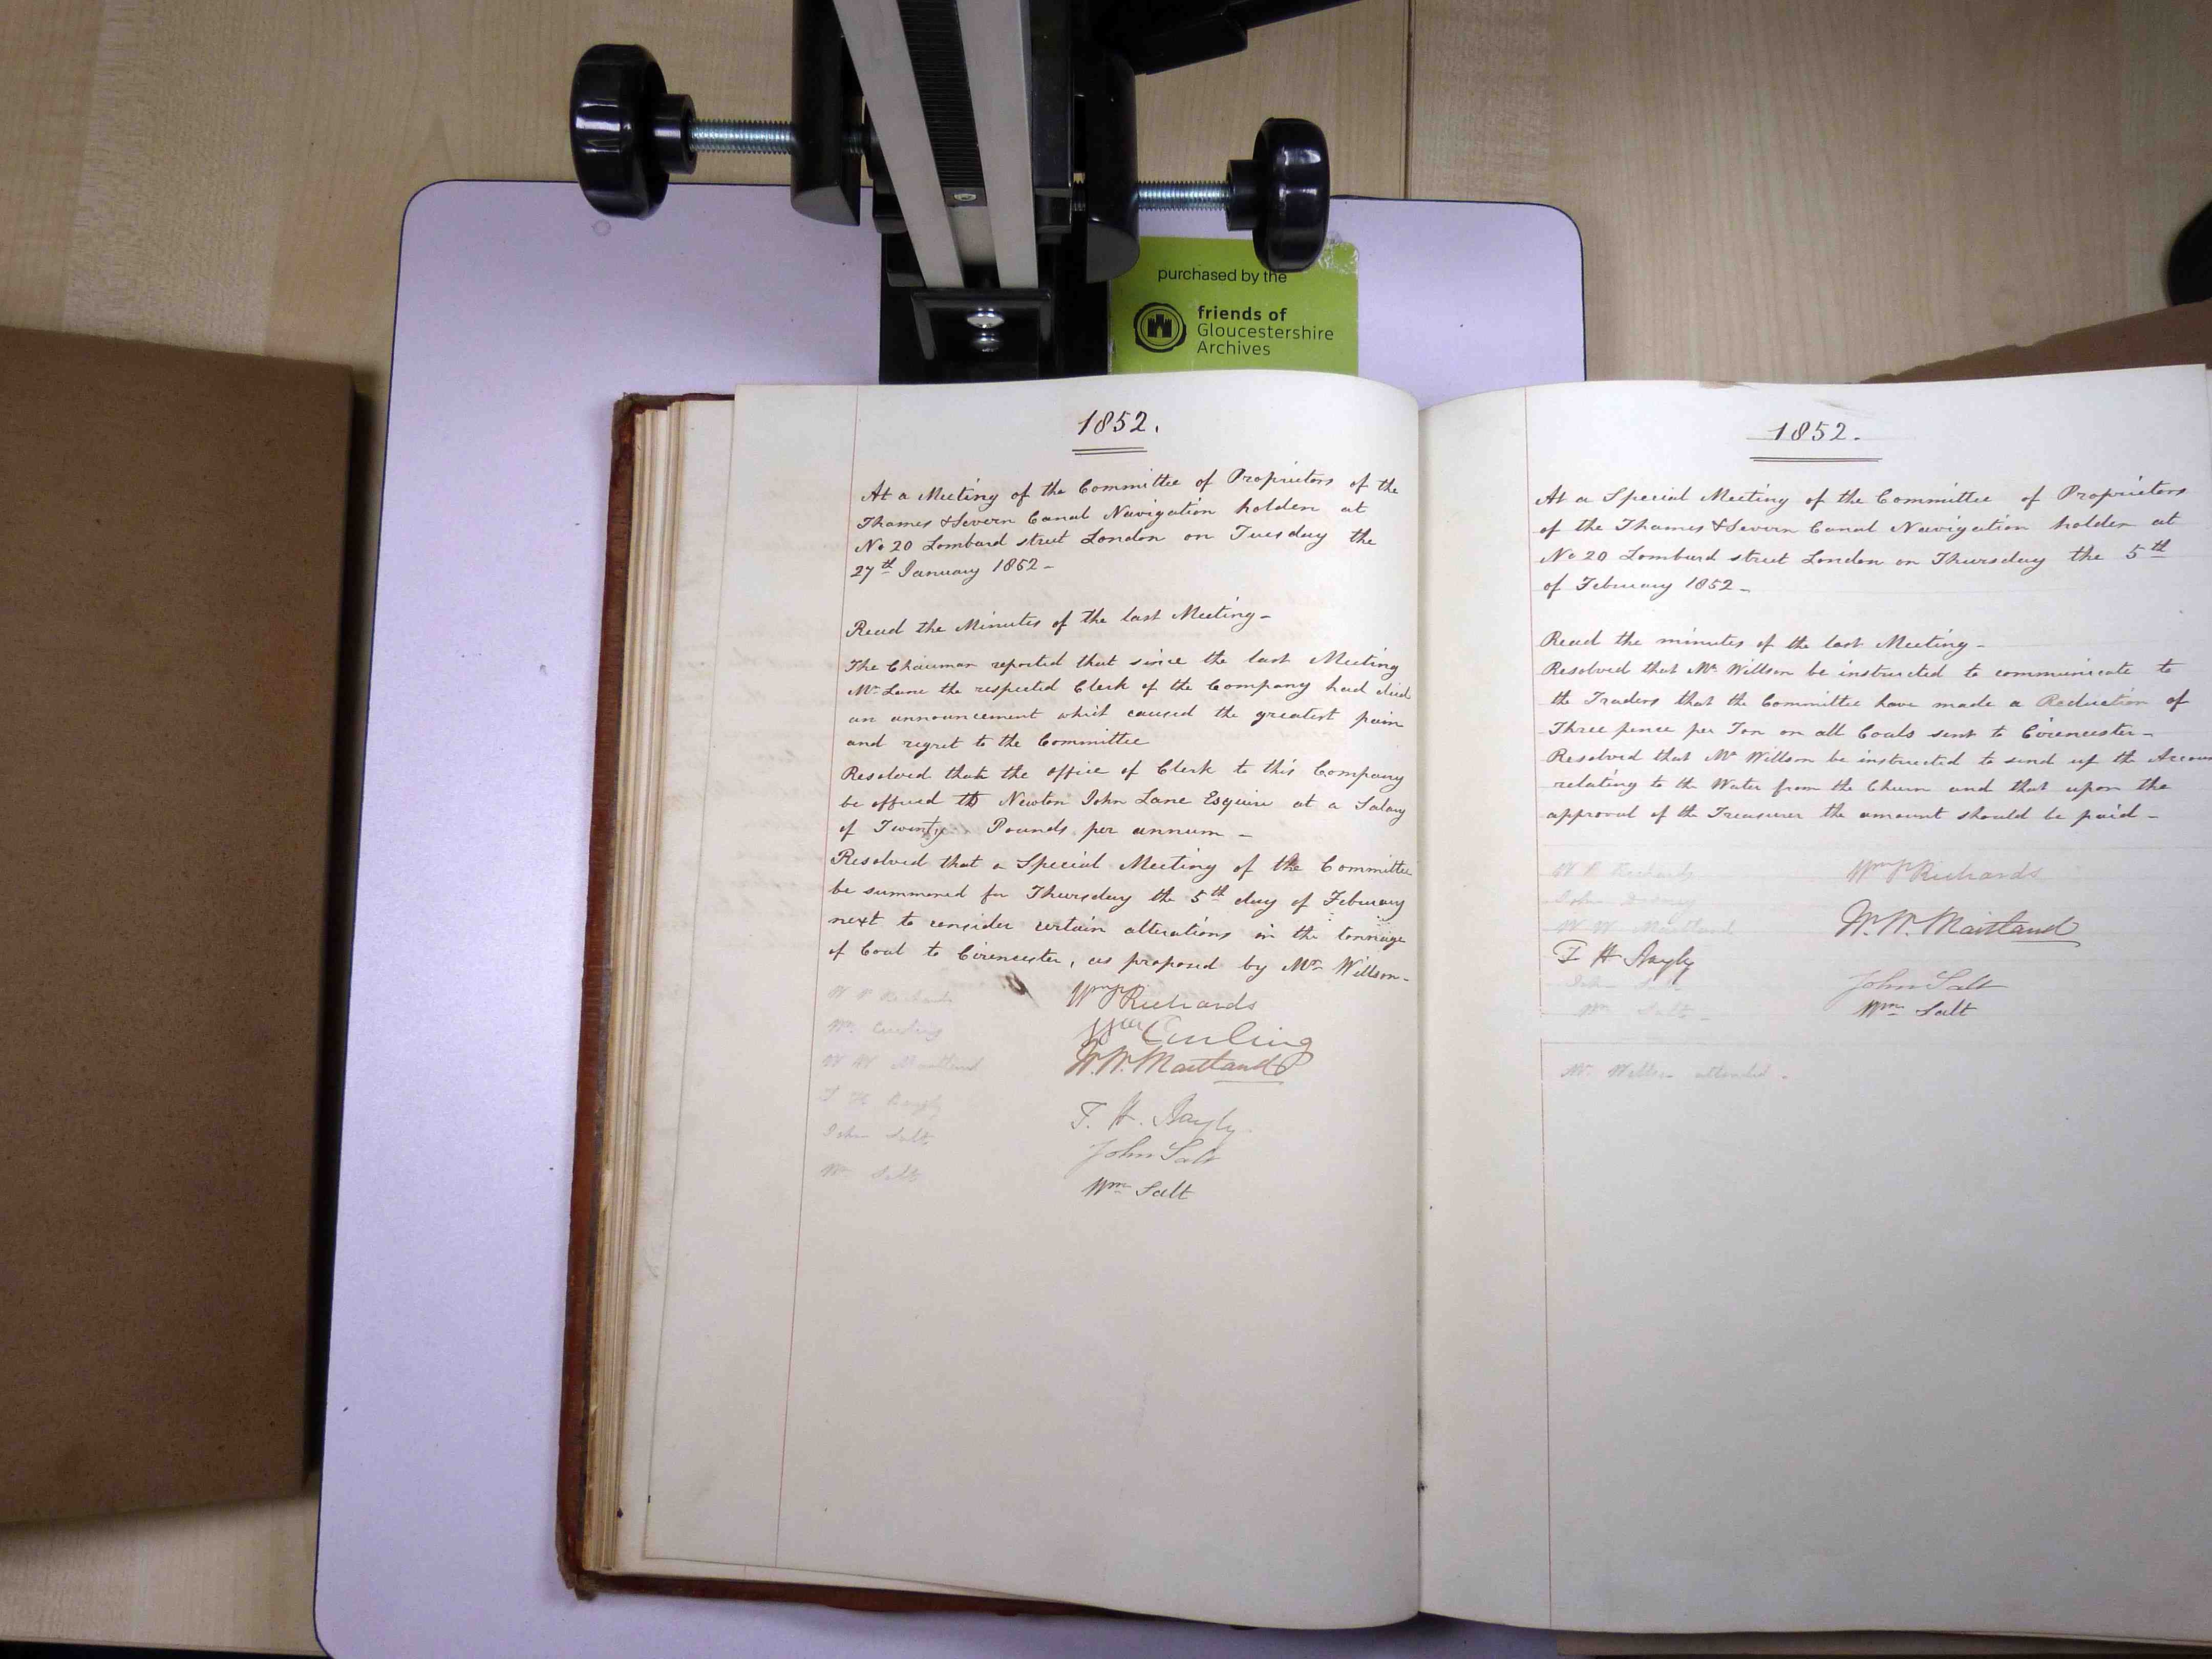 purchased by the
friends of
Gloucestershire
Archives
1852.
At a Meeting of the Committee of Proprietors of the
Thames & Severn Canal Navigation holden at
No 20 Lombard street London on Tuesday the
27th January 1852 -
Read the Minutes of the last Meeting -
The Chairman reported that since the last Meeting
Mr Lane the respected Clerk of the Company had died
an announcement which caused the greatest pain
and regret to the Committee
Resolved that the office of Clerk to this Company
be offered to Newton John Lane Esquire at a Salary
of Twenty Pounds per annum -
Resolved that a Special Meeting of the Committee
be summoned for Thursday the 5th day of February
next to consider certain alterations in the tonnage
of Coal to Cirencester, as proposed by Mr Willson -
W P Richards Wm P Richards
Wm Curling Wm Curling
W W Maitland W. W. Maitland
T H Bayly T. H. Bayly
John Salt John Salt
Wm Salt Wm Salt
1852.
At a Special Meeting of the Committee of Proprietors
of the Thames & Severn Canal Navigation holden at
No 20 Lombard street London on Thursday the 5th
of February 1852 -
Read the minutes of the last Meeting -
Resolved that Mr Willson be instructed to communicate to
the Traders that the Committee have made a Reduction of
Three pence per Ton on all Coals sent to Cirencester -
Resolved that Mr Willson be instructed to send up the Accoun
relating to the Water from the Churn and that upon the
approval of the Treasurer the amount should be paid -
W P Richards Wm P Richards
John
W W Maitland W. W. Maitland
T H Bayly
John Salt John Salt
Wm Salt - Wm Salt
Mr Willson attended -